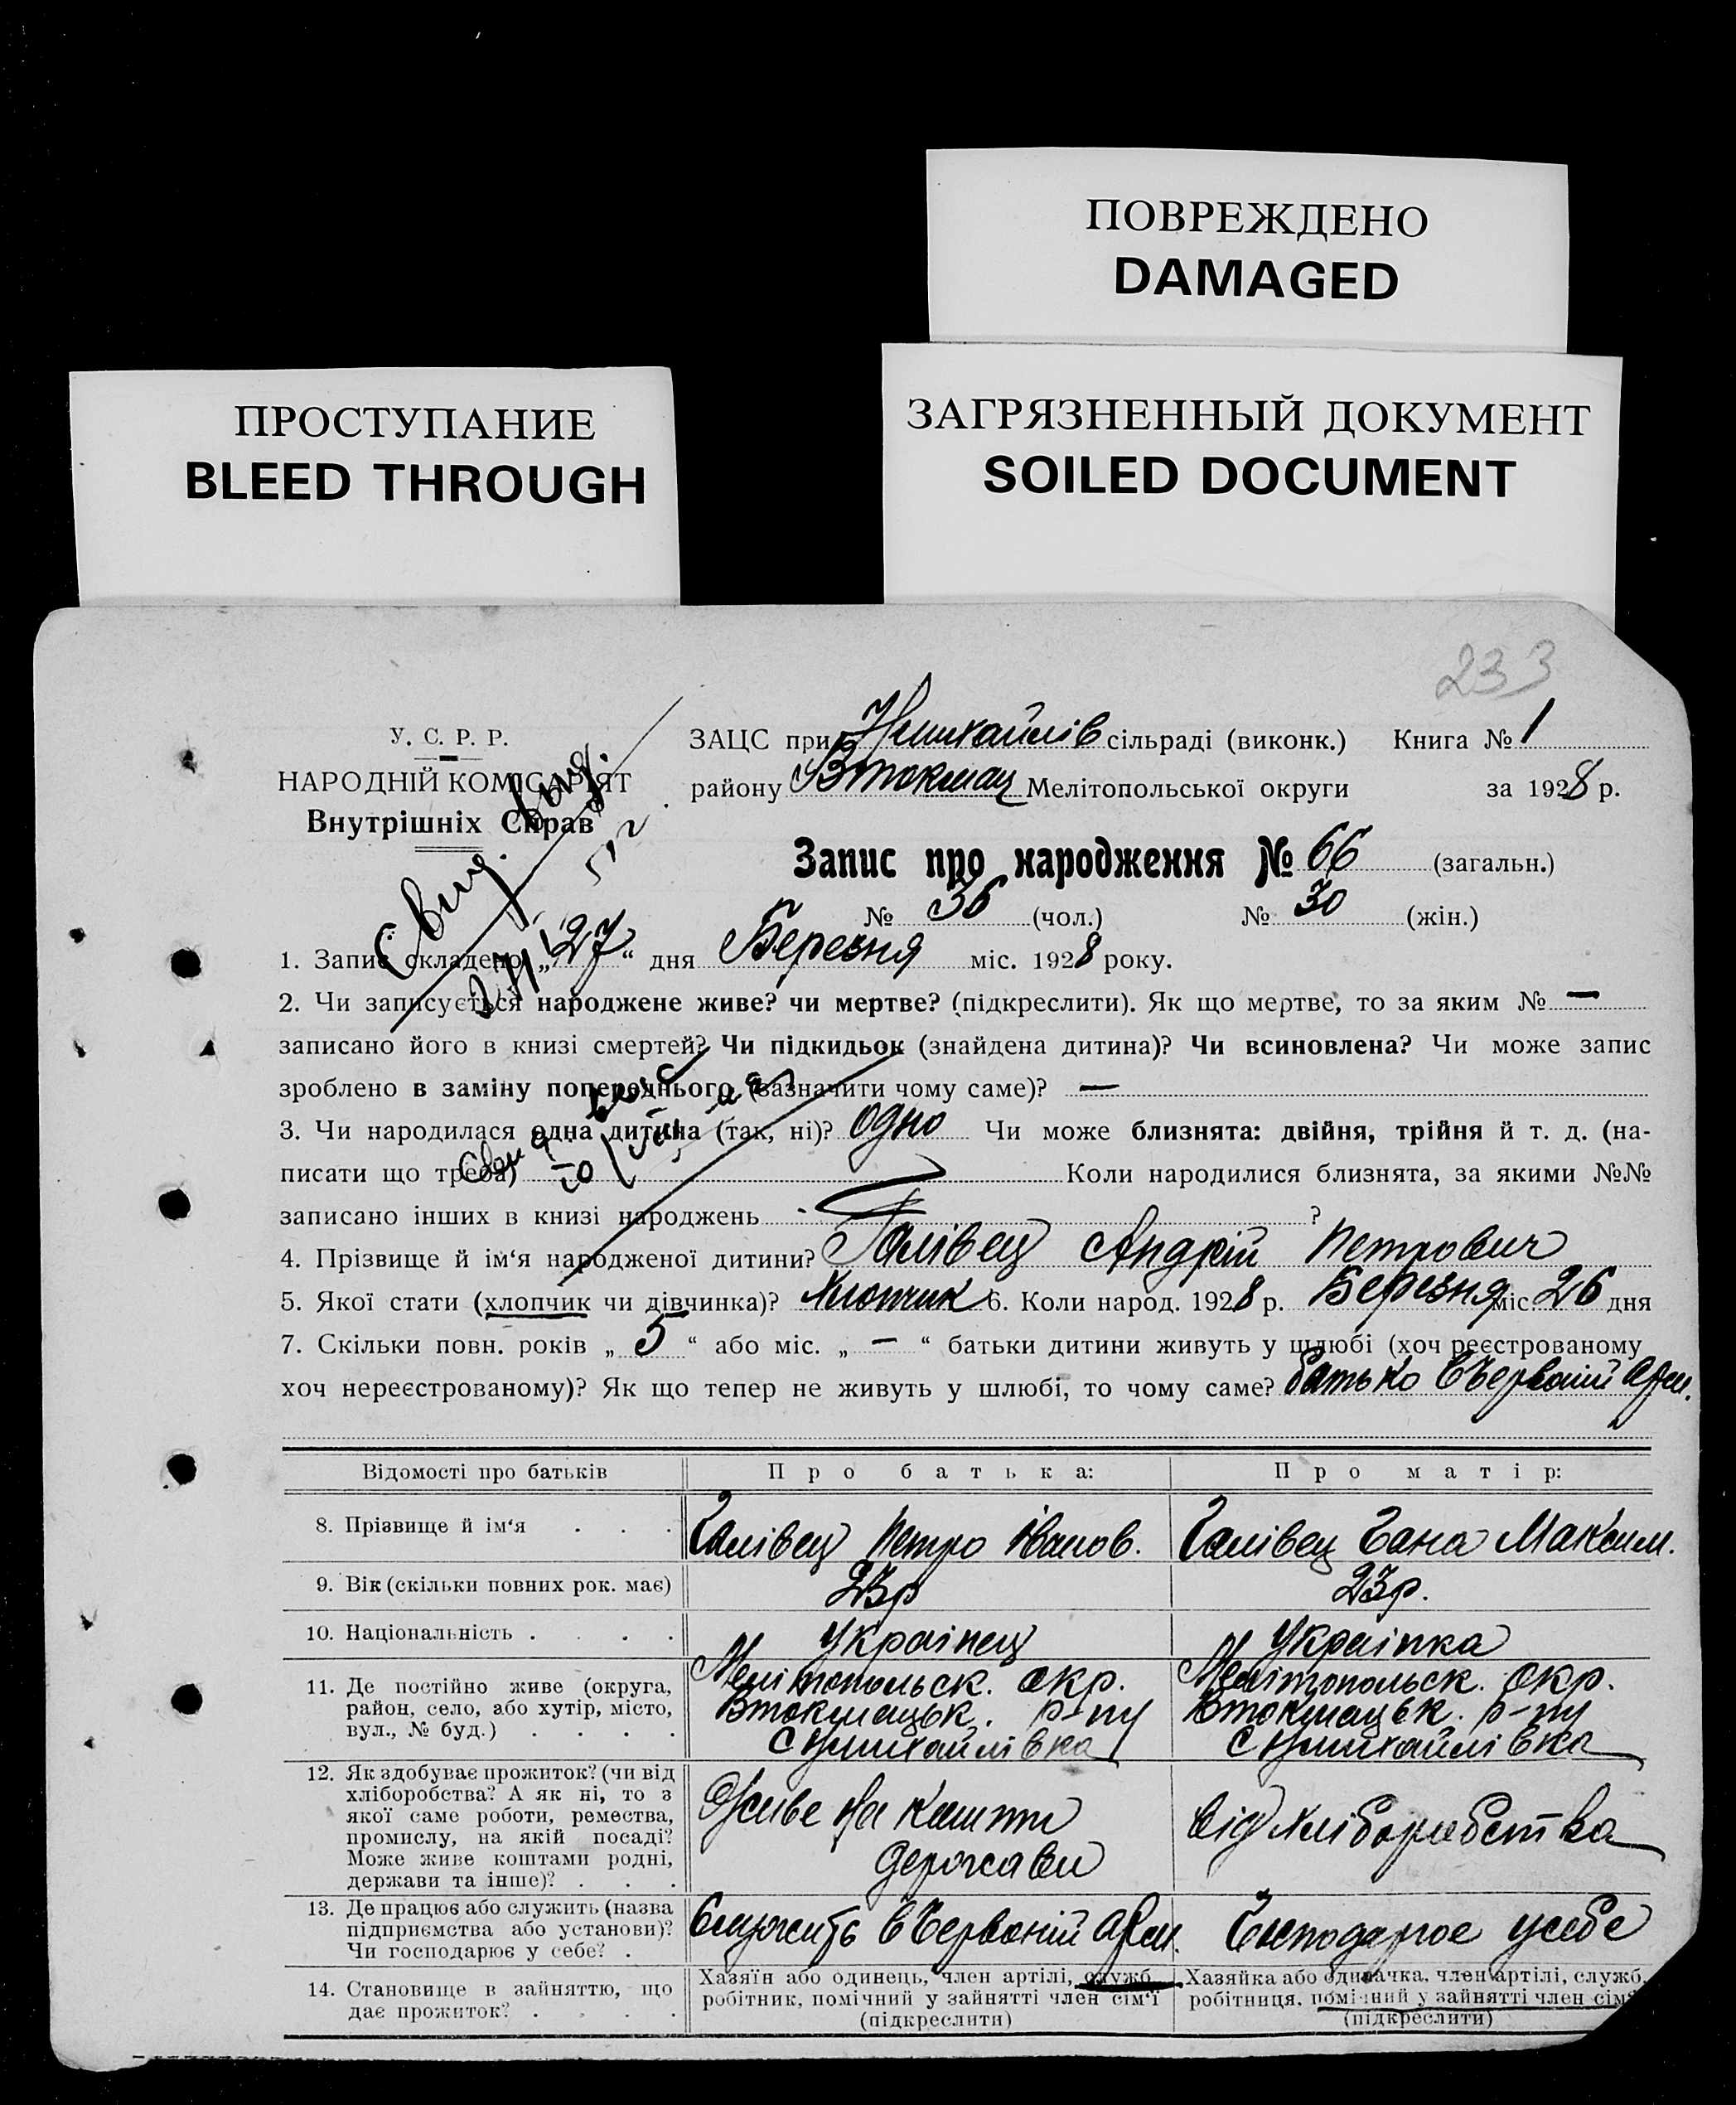 ПОВРЕЖДЕНО
DAMAGED
ПРОСТУПАНИЕ
BLEED THROUGH
ЗАГРЯЗНЕННЫЙ ДОКУМЕНТ
SOILED DOCUMENT
233
У. С. Р. Р.
НАРОДНІЙ КОМІСАРІЯТ
Внутрішніх Справ
ЗАЦС при Нмихайлів сільраді (виконк.) Книга № 1
району Втокмац Мелітопольської округи за 1928 р.
Запис про народження № 66 (загальн.)
№ 36 (чол.) № 30 (жін.)
1. Запис складено „27“ дня Березня міс. 1928 року.
2. Чи записується народжене живе? чи мертве? (підкреслити). Як що мертве, то за яким № —
записано його в книзі смертей? Чи підкидьок (знайдена дитина)? Чи всиновлена? Чи може запис
зроблено в заміну попереднього (зазначити чому саме)? —
3. Чи народилася одна дитина (так, ні)? одно Чи може близнята: двійня, трійня й т. д. (на-
писати що треба) Коли народилися близнята, за якими №№
записано інших в книзі народжень ?
4. Прізвище й ім‘я народженої дитини? Галівец Андрій Петрович
5. Якої стати (хлопчик чи дівчинка)? Хлопчик 6. Коли народ. 1928 р. Березня міс. 26 дня
7. Скільки повн. років „ 5 “ або міс. „ — “ батьки дитини живуть у шлюбі (хоч реєстрованому
хоч нереєстрованому)? Як що тепер не живуть у шлюбі, то чому саме? батько в Червоній Арм.
Відомості про батьків Про батька: Про матір:
8. Прізвище й ім‘я . . . Галівец Петро Іванов. Галівец Гана Максим.
9. Вік (скільки повних рок. має) 23р 23р.
10. Національність . . . . Українец Українка
11. Де постійно живе (округа, район, село, або хутір, місто, вул., № буд.) . . . .
Мелітопольск. окр. Мелітопольск. окр.
Втокмацьк. р-ну Втокмацьк. р-ну
С Нмихайлівка С Нмихайлівка
12. Як здобуває прожиток? (чи від
хліборобства? А як ні, то з
якої саме роботи, ремества,
промислу, на якій посаді?
Може живе коштами родні,
держави та інше)? . . .
Живе на кошти
держави
від хліборобства
13. Де працює або служить (назва
підприємства або установи)?
Чи господарює у себе? .
Служить в Червоній Арм. Господарює у себе
14. Становище в зайняттю, що
дає прожиток? . . . .
Хазяїн або одинець, член артілі, служб.
робітник, помічний у зайнятті член сім‘ї
(підкреслити)
Хазяйка або одиначка, член артілі, служб.
робітниця, помічний у зайнятті член сім‘ї
(підкреслити)